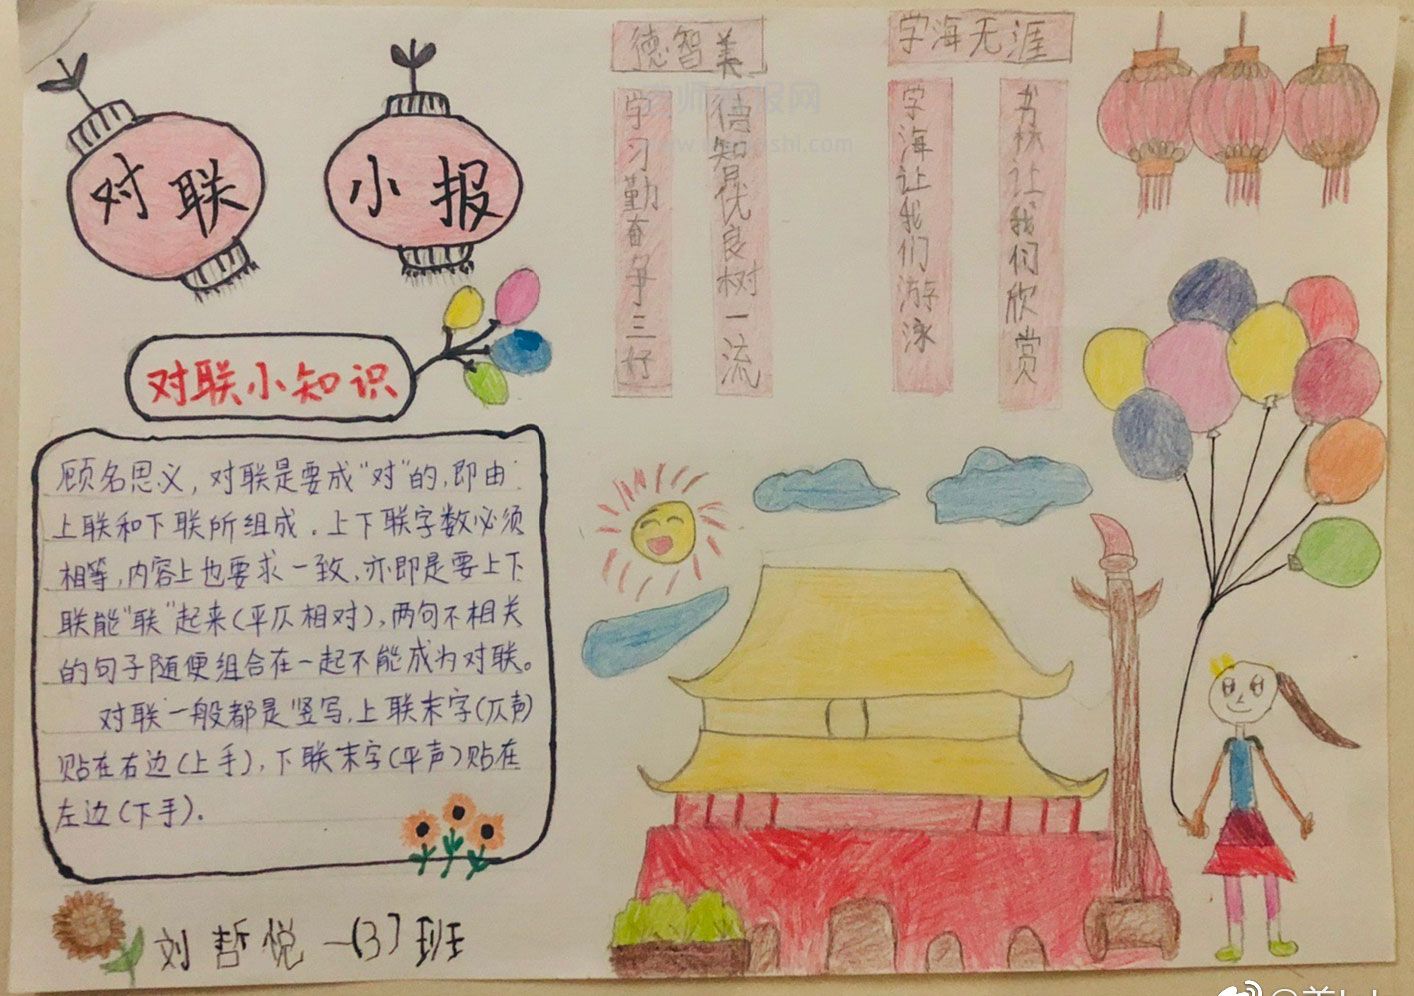 对联
小报
德智美
学习勤奋争三好
德智最优良树一流
学海无涯
学海让我们游泳
书林让我们欣赏
对联小知识
顾名思义，对联是要成“对”的，即由
上联和下联所组成．上下联字数必须
相等，内容上也要求一致，亦即是要上下
联能“联”起来(平仄相对)，两句不相关
的句子随便组合在一起不能成为对联。
对联一般都是竖写，上联末字(仄声)
贴在右边(上手)，下联末字(平声)贴在
左边(下手)．
刘哲悦一(3)班